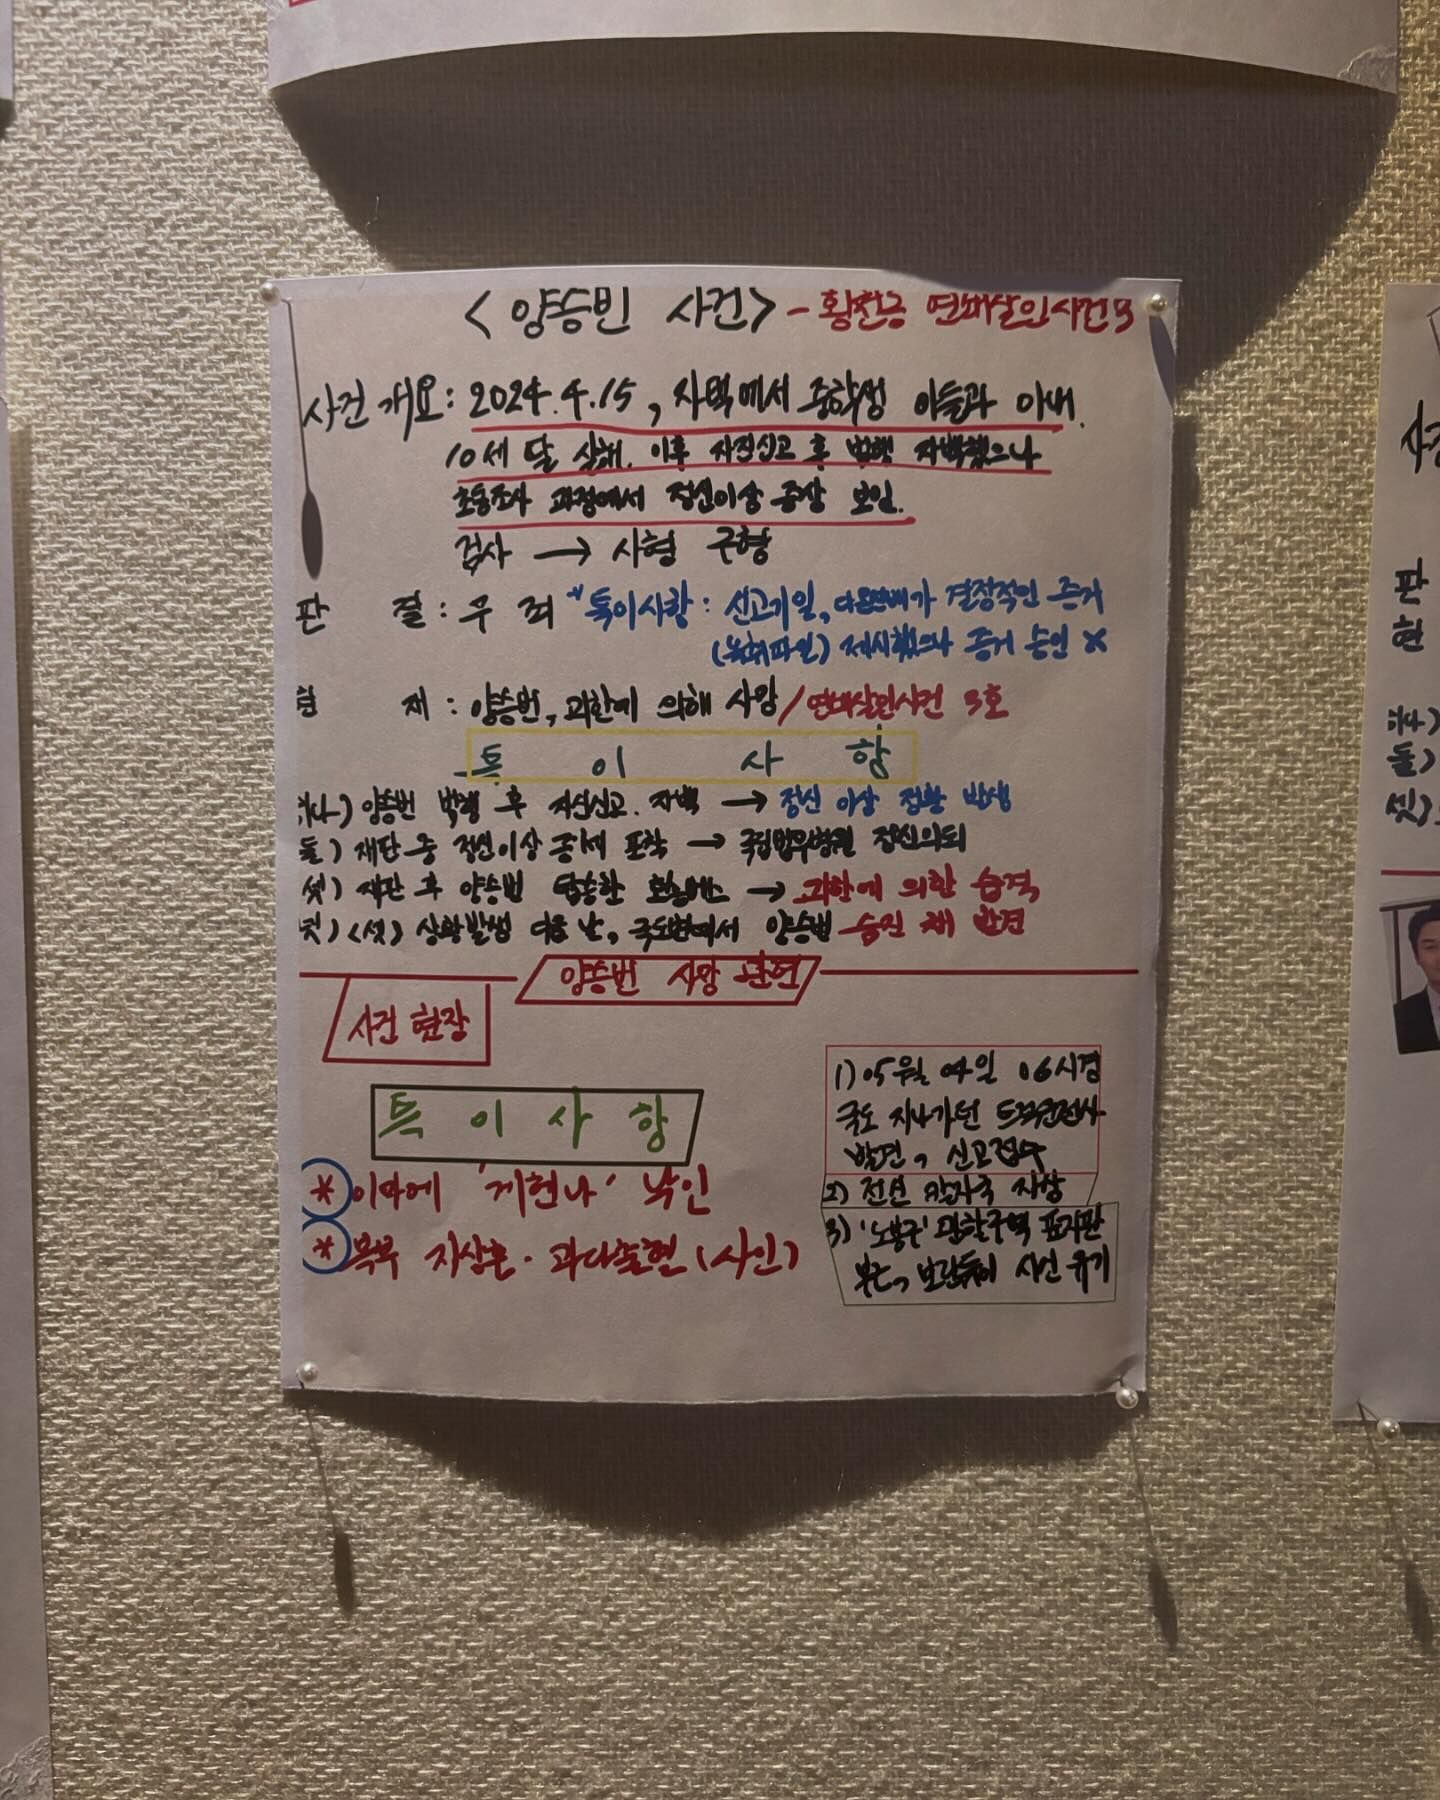 <양승빈 사건> - 황천길 연쇄살인사건 3
사건 개요: 2024.4.15, 자택에서 중학생 아들과 아내,
10세 딸 살해. 이후 자진신고 후 범행 자백했으나
초동조사 과정에서 정신이상 증상 보임.
검사 → 사형 구형
판 결: 무 죄 *특이사항: 신고기일, 가 결정적인 증거
(녹취파일) 제시했으나 증거 승인 X
현 재: 양승빈, 괴한에 의해 사망/연쇄살인사건 3호
특 이 사 항
하나) 양승빈 범행 후 자진신고. 자백 → 정신 이상 정황 발생
둘) 재판 중 정신이상 증세 포착 → 국립법무병원 정신의뢰
셋) 재판 후 양승빈 탑승한 호송버스 → 괴한에 의한 습격
넷) <셋> 상황발생 다음 날, 국도변에서 양승빈 숨진 채 발견
양승빈 사망 관련
사건 현장
특 이 사 항
* 이마에 '게헨나' 낙인
* 복부 자상흔·과다출혈 (사인)
1) 05월 04일 06시경
국도 지나가던 트럭운전사
발견, 신고접수
2) 전신 자상
3) '노봉구' 관할구역 표지판
부근, 보란듯이 시신 유기
사건
판
현
하나)
둘)
셋)